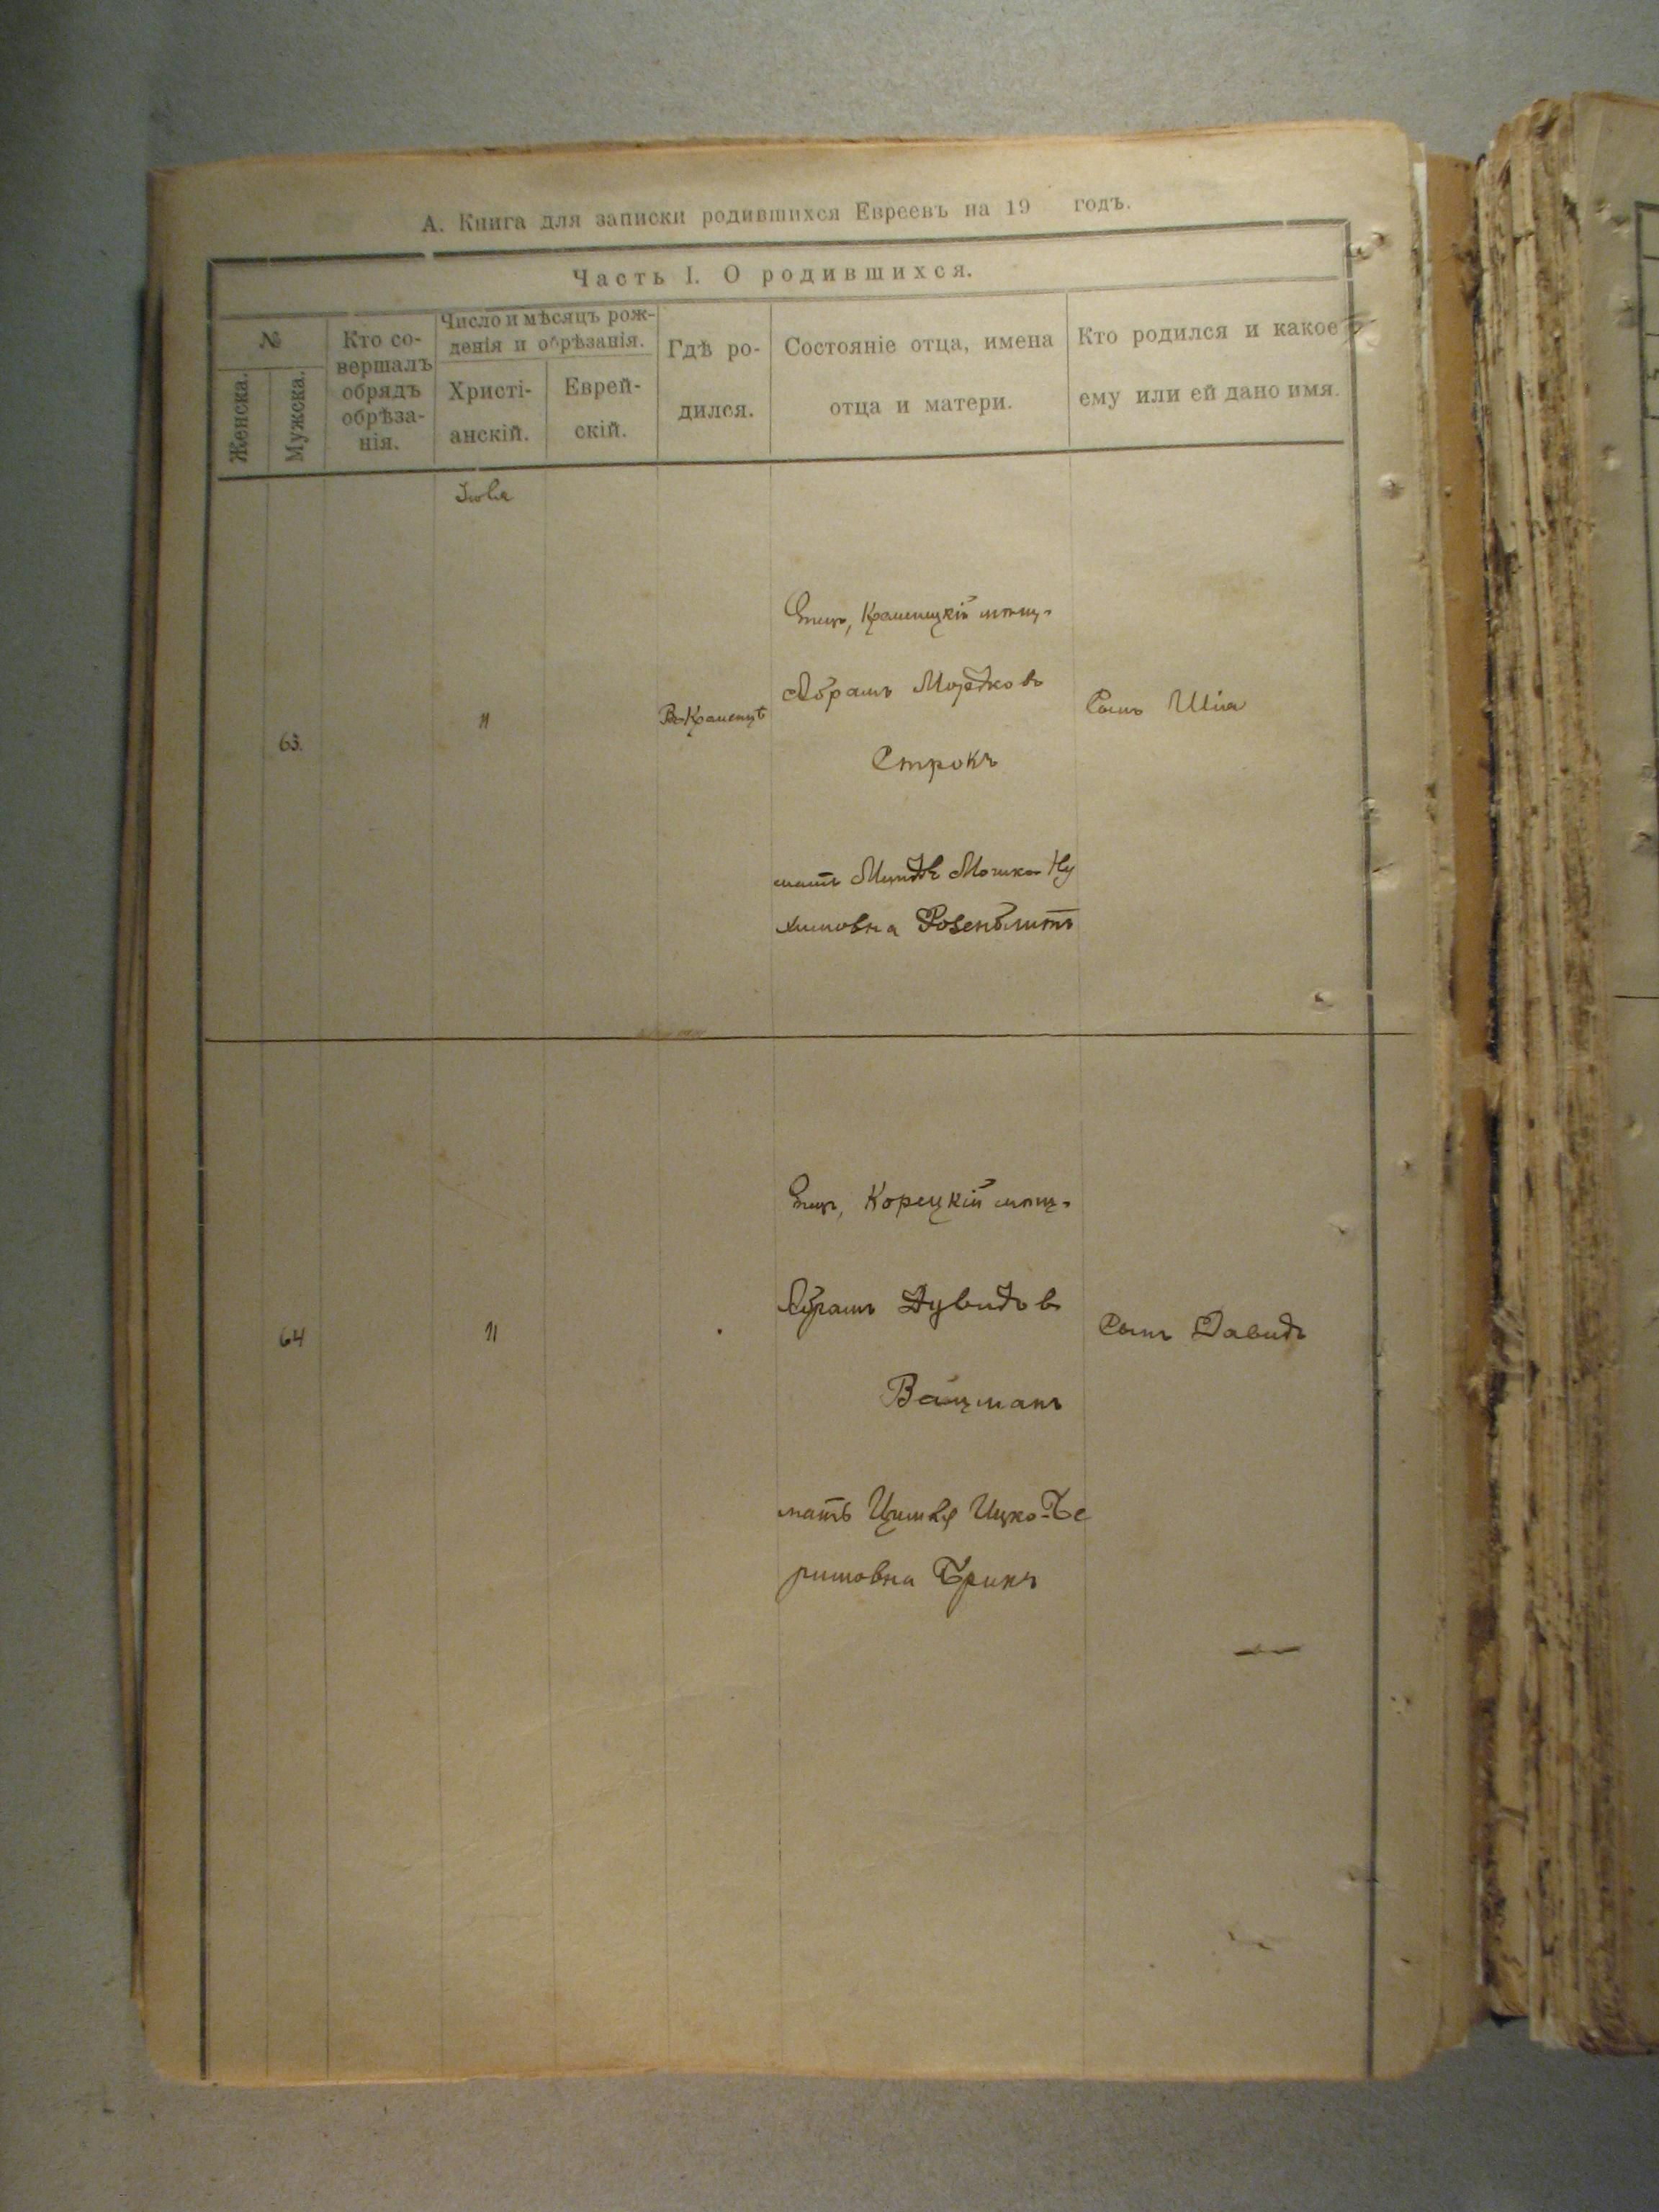 А. Книга для записки родившихся Евреевъ на 19 годъ.
Часть I. О родившихся.
№
Женска.
Мужска.
Кто со-
вершалъ
обрядъ
обрѣза-
нія.
Число и мѣсяцъ рож-
денія и обрѣзанія.
Христі-
анскій.
Еврей-
скій.
Гдѣ ро-
дился.
Состояніе отца, имена
отца и матери.
Кто родился и какое
ему или ей дано имя.
Іюля
63.
11
Въ Кременцѣ
Отецъ, Кременецкій мѣщ.
Абрамъ Мордковъ
Строкъ
мать Миндля Мошко-Ну
химовна Розенблитъ
Сынъ Шіа
64
11
Отецъ, Корецкій мѣщ.
Абрамъ Дувидовъ
Вайцманъ
мать Ицко-Бе
ришовна Брикъ
Сынъ Давидъ